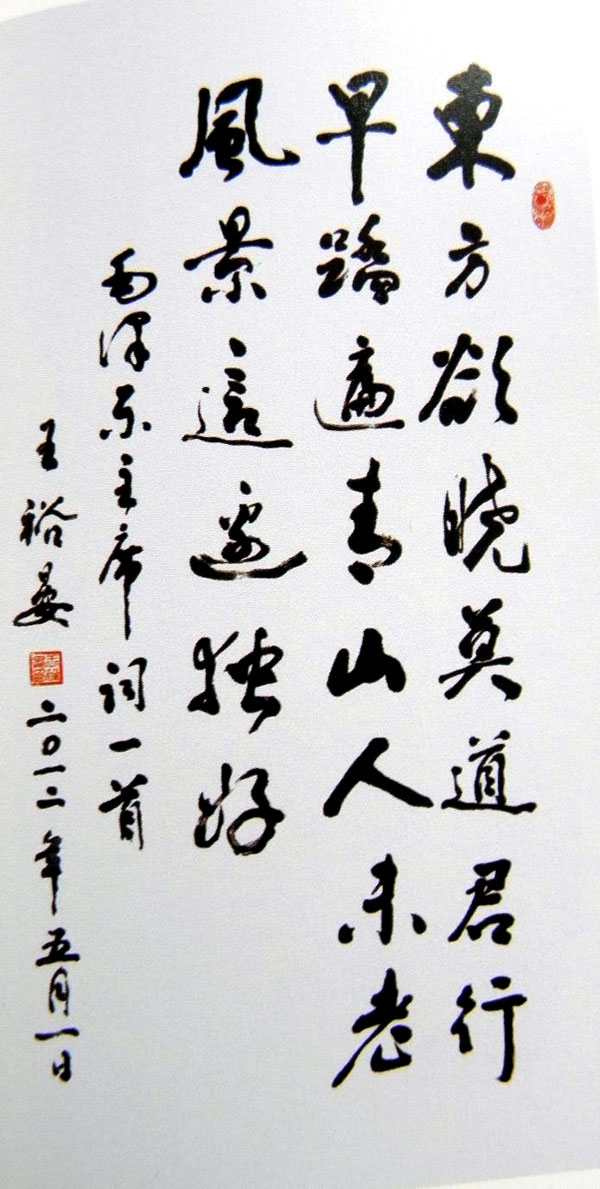 東方欲曉莫道君行
早踏遍青山人未老
風景這邊独好
毛泽东主席词一首
王裕晏
二〇一二年五月一日